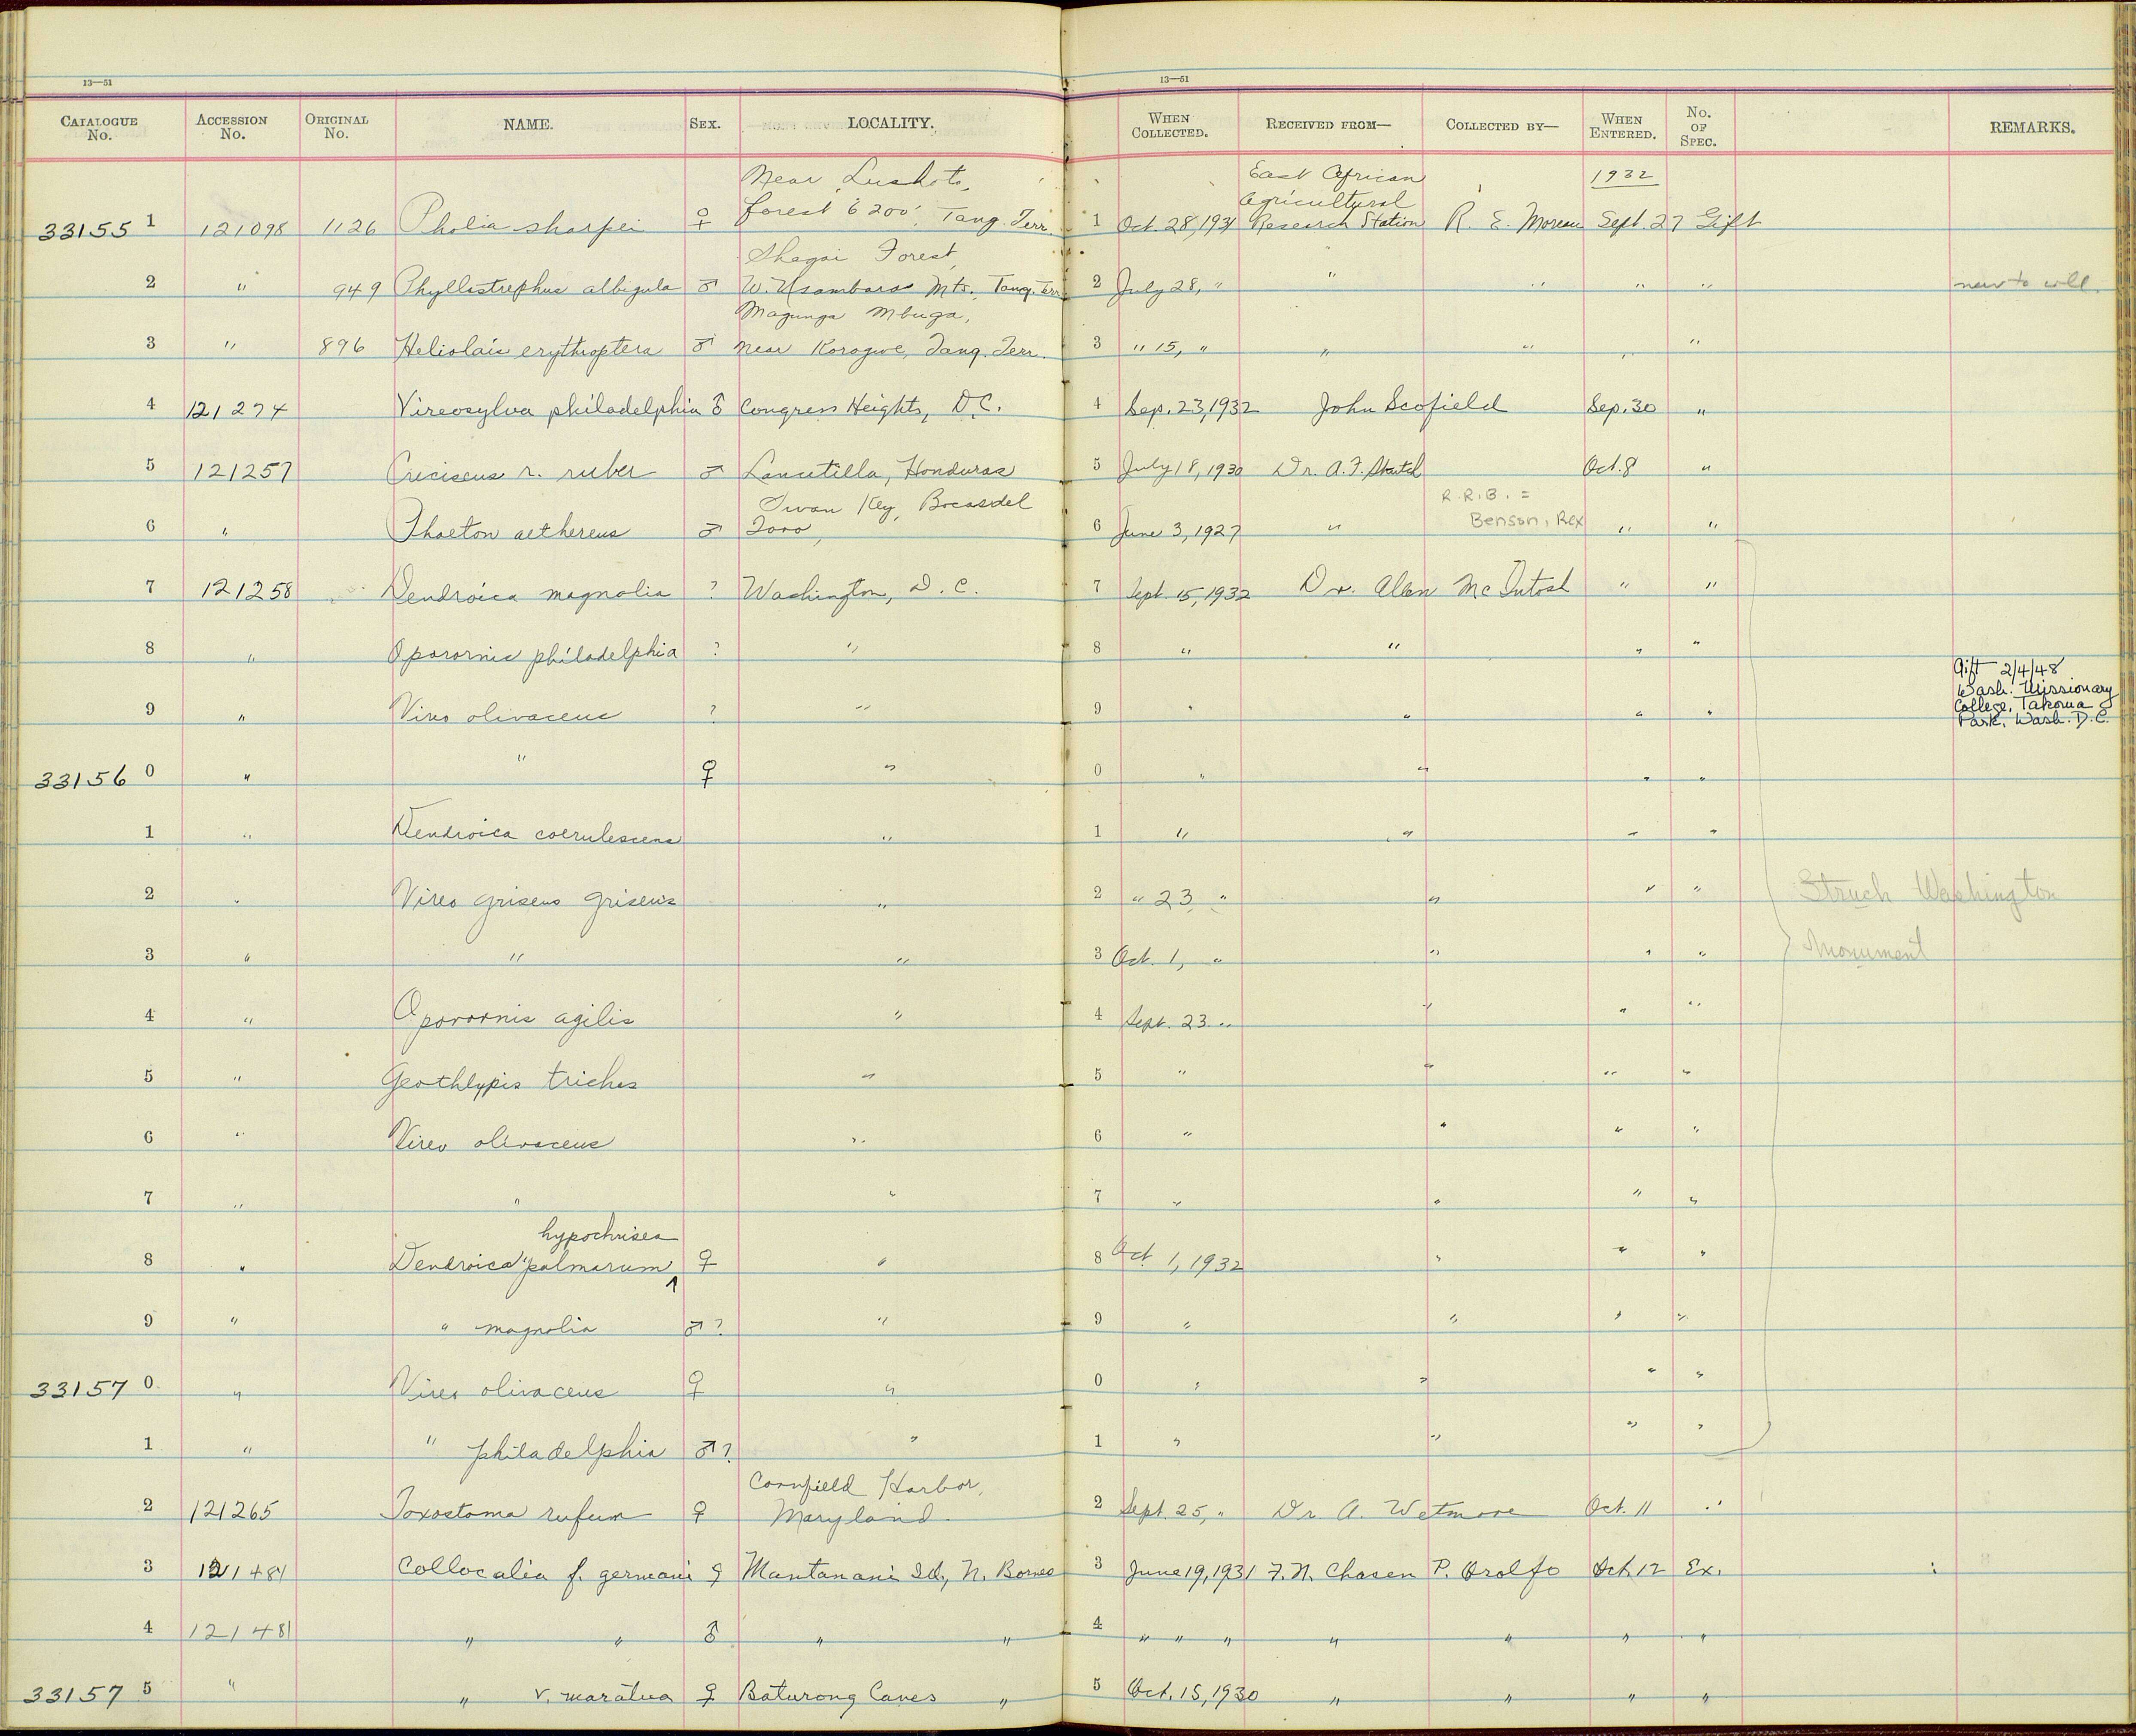 13—51 13—51
CATALOGUE No. ACCESSION No. ORIGINAL No. NAME. SEX. LOCALITY. WHEN COLLECTED. RECEIVED FROM— COLLECTED BY— WHEN ENTERED. No. OF SPEC. REMARKS.
Near Lushoto, East African 1932
forest 6200', Tang. Terr. Agricultural
33155 1 121098 1126 Pholia sharpei ♀ 1 Oct. 28, 1931 Research Station R. E. Moreau Sept. 27 Gift
Shagai Forest,
2 " 949 Phyllastrephus albigula ♂ W. Usambara Mts., Tang. Terr. 2 July 28, " " " " " new to coll.
Magunga Mbuga,
3 " 896 Heliolais erythroptera ♂ near Korogwe, Tang. Terr. 3 " 15, " " " " "
4 121274 Vireosylva philadelphia ♂ Congress Heights, D.C. 4 Sep. 23, 1932 John Scofield Sep. 30 "
5 121257 Creciscus r. ruber ♂ Lancetilla, Honduras 5 July 18, 1930 Dr. A. F. Skutch Oct. 8 "
Swan Key, Bocas del R.R.B. =
6 " Phaeton aethereus ♂ Toro, 6 June 3, 1927 " Benson, Rex " "
7 121258 Dendroica magnolia ? Washington, D. C. 7 Sept. 15, 1932 Dr. Allen McIntosh " "
8 " Oporornis philadelphia ? " 8 " " " "
Gift 2/4/48
Wash. Missionary
9 " Vireo olivaceus ? " 9 " " " " College, Takoma
Park, Wash. D.C.
33156 0 " " ♀ " 0 " " " "
1 " Dendroica coerulescens " 1 " " " "
2 " Vireo griseus griseus " 2 " 23 " " " " Struck Washington
3 " " " 3 Oct. 1, " " " " Monument
4 " Oporornis agilis " 4 Sept. 23 " " " "
5 " Geothlypis trichas " 5 " " " "
6 " Vireo olivaceus " 6 " " " "
7 " " " 7 " " " "
hypochrisea
8 " Dendroica palmarum ♀ " 8 Oct. 1, 1932 " " "
9 " " magnolia ♂? " 9 " " " "
33157 0 " Vireo olivaceus ♀ " 0 " " " "
1 " " philadelphia ♂? " 1 " " " "
Cornfield Harbor,
2 121265 Toxostoma rufum ♀ Maryland. 2 Sept. 25, " Dr. A. Wetmore Oct. 11 "
3 121481 Collocalia f. germani ♀ Mantanani Id., N. Borneo 3 June 19, 1931 F. N. Chasen P. Orolfo Oct. 12 Ex.
4 121481 " " ♂ " " 4 " " " " " " "
33157 5 " " v. maratua ♀ Baturong Caves " 5 Oct. 15, 1930 " " " "